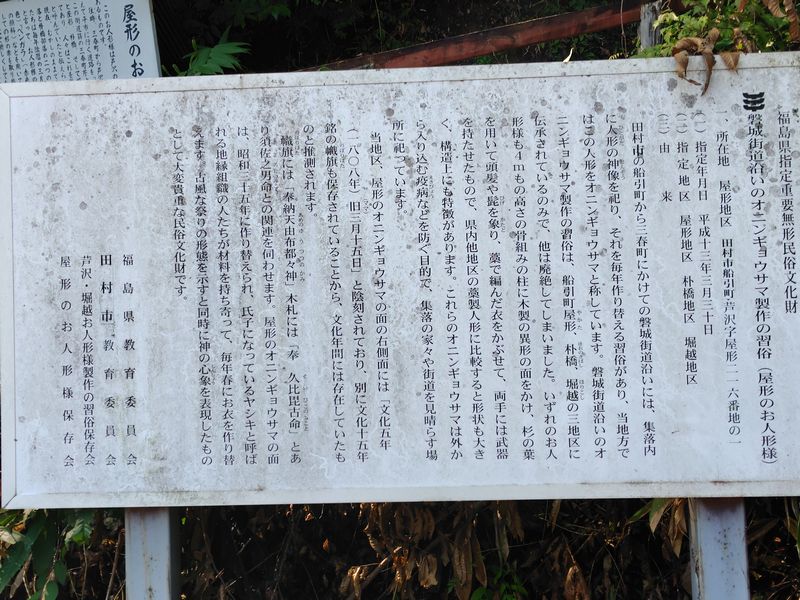 福島県指定重要無形民俗文化財
磐城街道沿いのオニンギョウサマ製作の習俗（屋形のお人形様）
一、所在地　屋形地区　田村市船引町芦沢字屋形二一六番地の一
(一) 指定年月日　平成十三年三月三十日
(二) 指定地区　屋形地区　朴橋地区　堀越地区
(三) 由　来
田村市の船引町から三春町にかけての磐城街道沿いには、集落内
に人形の神像を祀り、それを毎年作り替える習俗があり、当地方で
はこの人形をオニンギョウサマと称しています。磐城街道沿いのオ
ニンギョウサマ製作の習俗は、船引町屋形、朴橋、堀越の三地区に
伝承されているのみで、他は廃絶してしまいました。いずれのお人
形様も4mもの高さの骨組みの柱に木製の異形の面をかけ、杉の葉
を用いて頭髪や髭を象り、藁で編んだ衣をかぶせて、両手には武器
を持たせたもので、県内他地区の藁製人形に比較すると形状も大き
く、構造上にも特徴があります。これらのオニンギョウサマは外か
ら入り込む疫病などを防ぐ目的で、集落の家々や街道を見晴らす場
所に祀っています。
当地区、屋形のオニンギョウサマの面の右側面には「文化五年
（一八〇八年）旧三月十五日」と陰刻されており、別に文化十五年
銘の幟旗も保存されていることから、文化年間には存在していたも
のと推測されます。
幟旗には「奉納天由布都々神」木札には「奉　久比毘古命」とあ
り須佐之男命との関連を伺わせます。屋形のオニンギョウサマの面
は、昭和二十五年に作り替えられ、氏子になっているヤシキと呼ば
れる地縁組織の人たちが材料を持ち寄って、毎年春にお衣を作り替
えます。古風な祭りの形態を示すと同時に神の心象を表現したもの
として大変貴重な民俗文化財です。
福島県教育委員会
田村市教育委員会
芦沢・堀越お人形様製作の習俗保存会
屋形のお人形様保存会
屋形のお